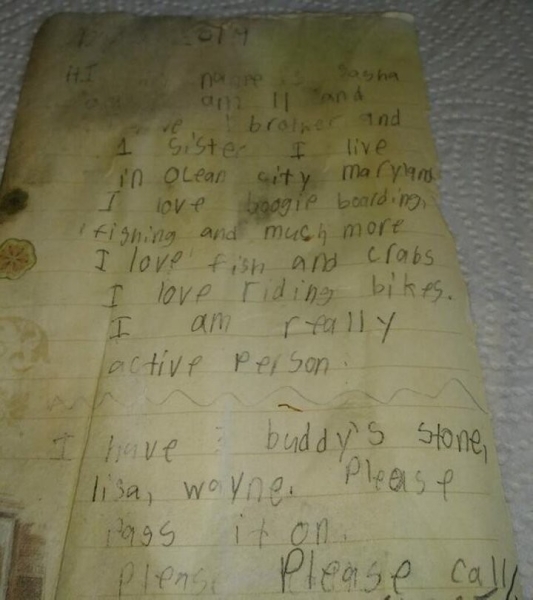 2014
HI name is Sasha
am 11 and
brother and
1 sister I live
in Ocean city maryland
I love boogie boarding,
fishing and much more
I love fish and crabs
I love riding bikes.
I am really
active Person.
I have buddy's stone,
lisa, wayne. Please
Pass it on.
Please Please call